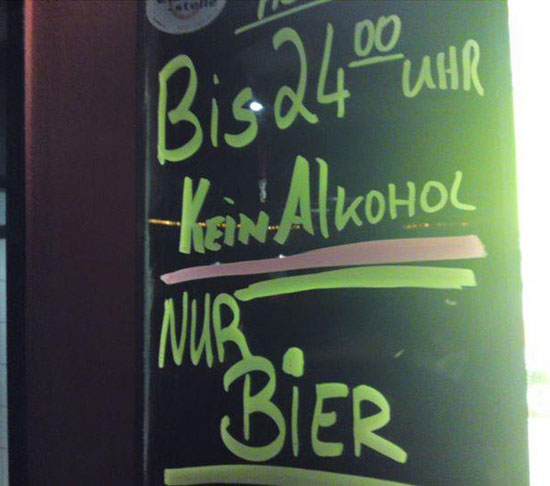 stelle
Bis 24 00 UHR
KEIN ALKOHOL
NUR
BiER